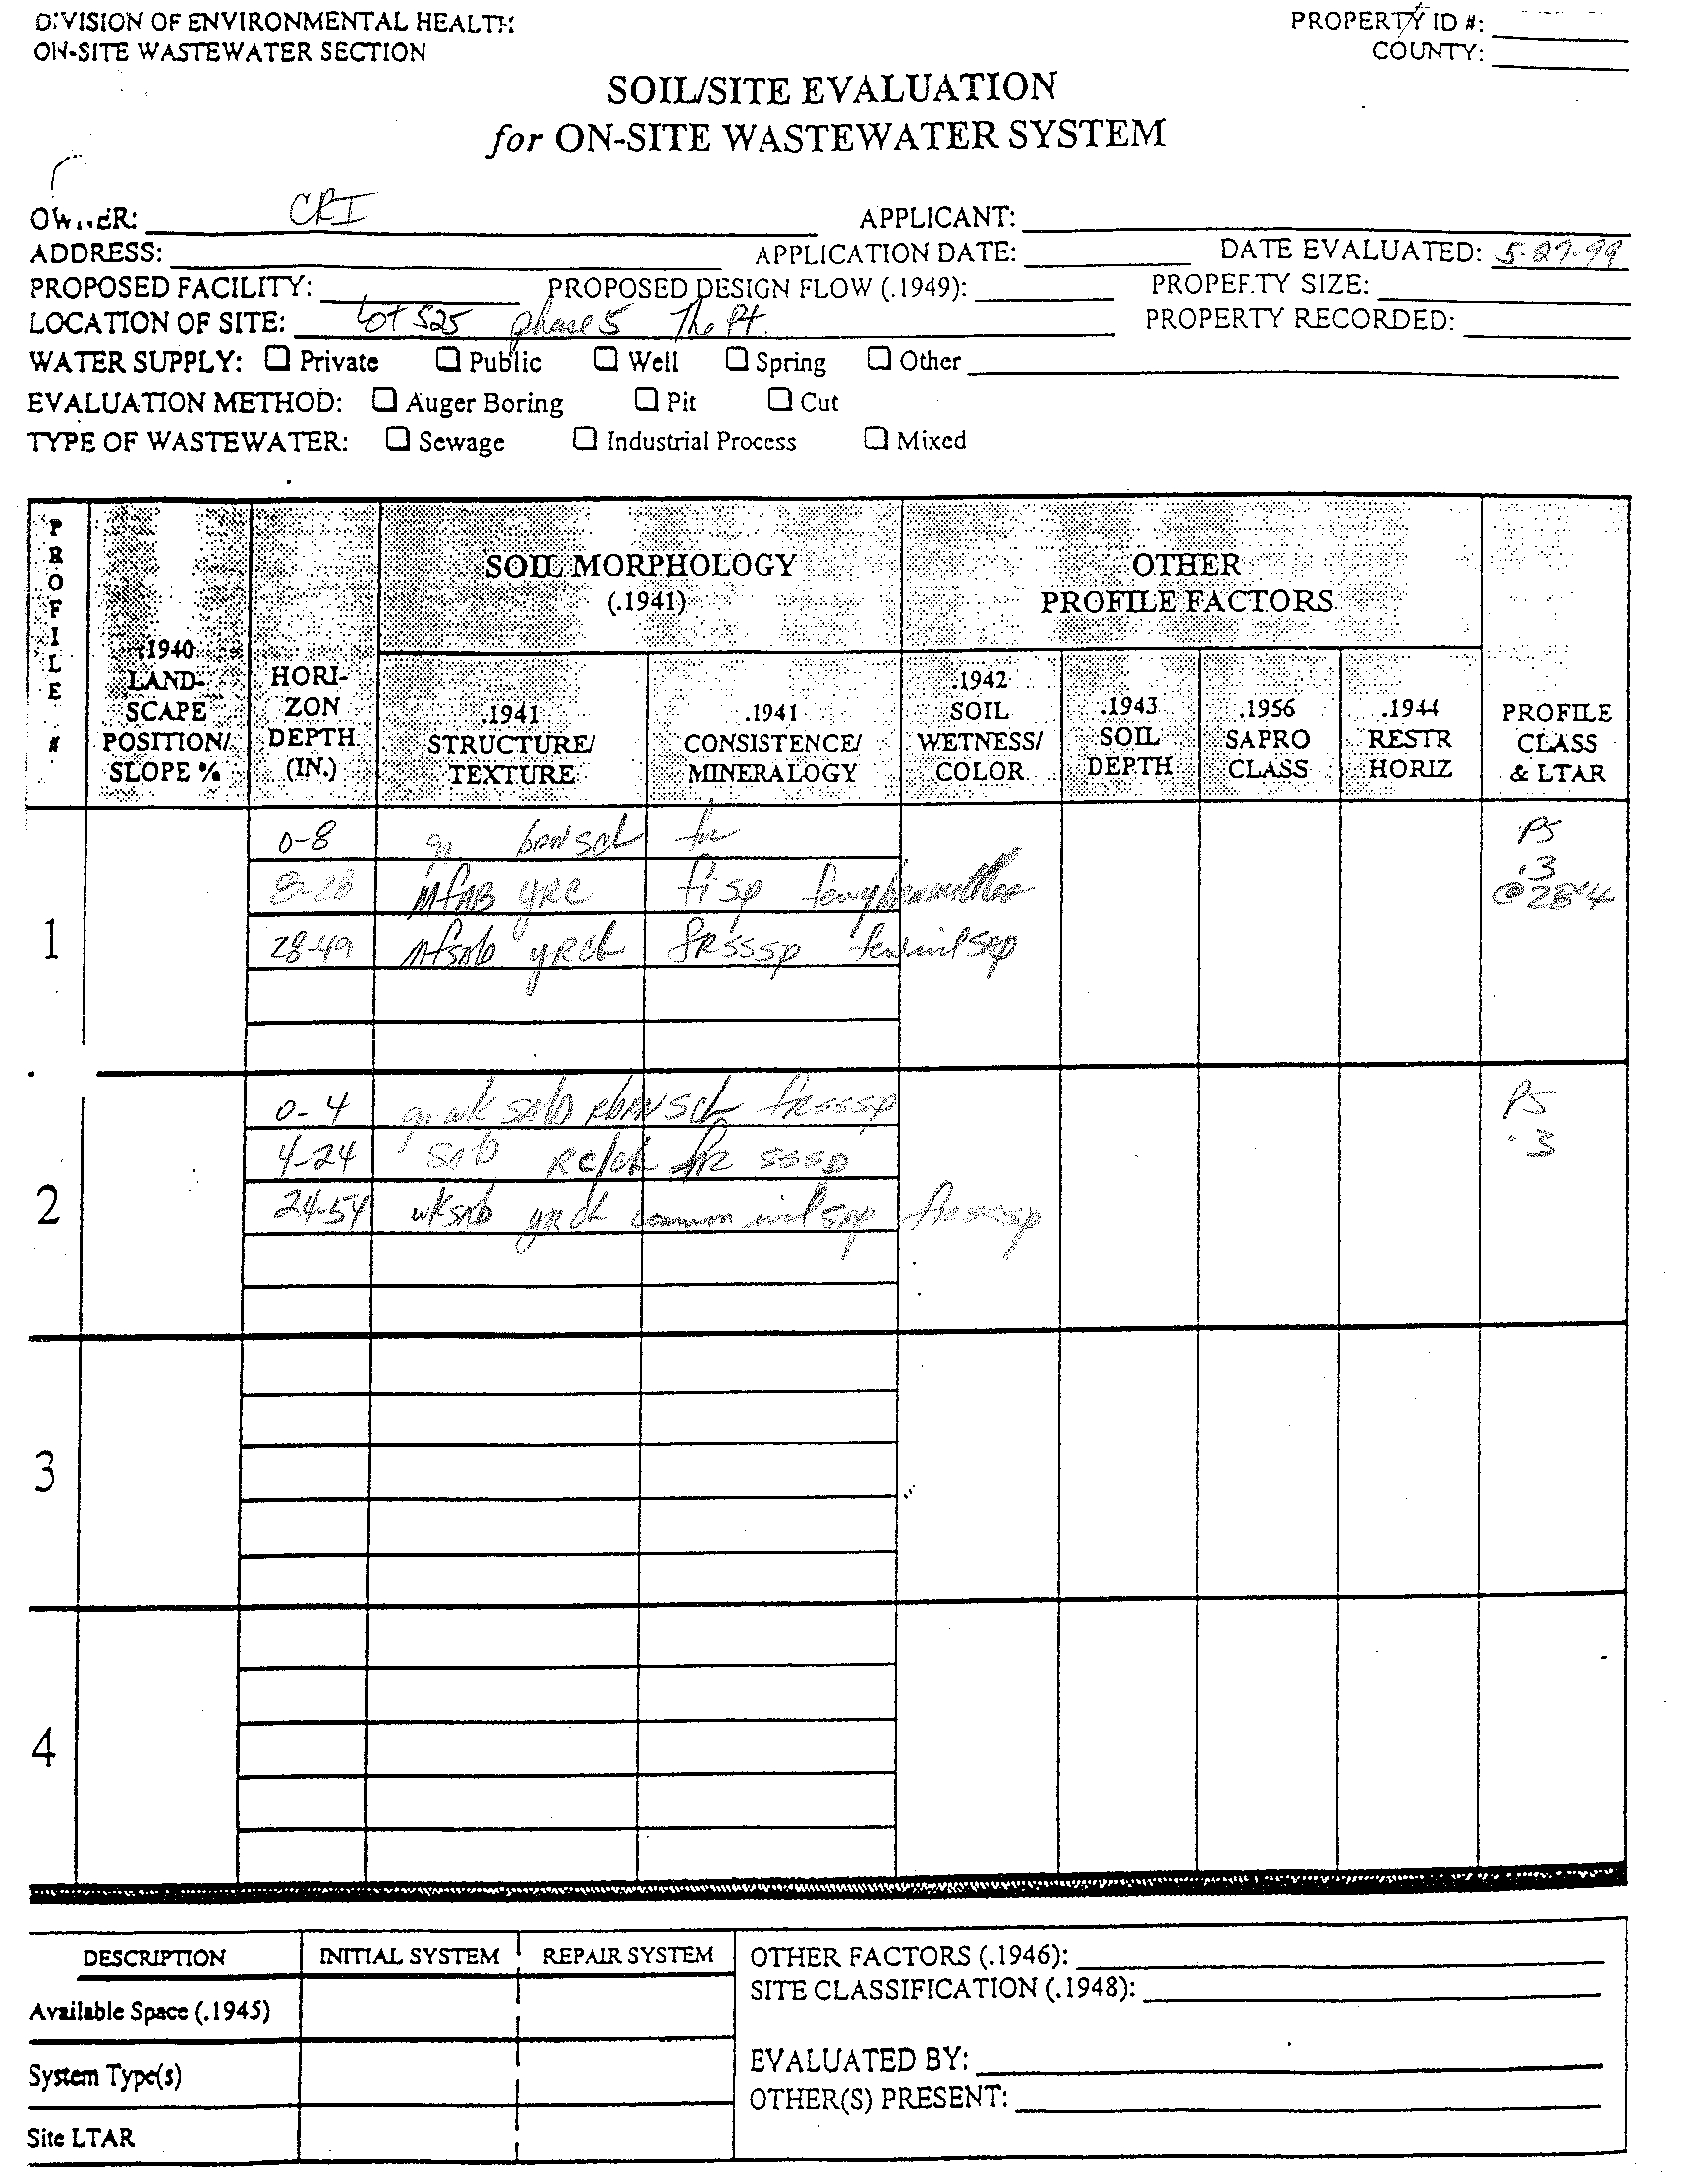 DIVISION OF ENVIRONMENTAL HEALTH
ON-SITE WASTEWATER SECTION
PROPERTY ID #:
COUNTY:
SOIL/SITE EVALUATION
for ON-SITE WASTEWATER SYSTEM
OWNER: CRI APPLICANT:
ADDRESS: APPLICATION DATE: DATE EVALUATED: 5-27-99
PROPOSED FACILITY: PROPOSED DESIGN FLOW (.1949): PROPERTY SIZE:
LOCATION OF SITE: Lot 525 phase 5 The Pt. PROPERTY RECORDED:
WATER SUPPLY: Private Public Well Spring Other
EVALUATION METHOD: Auger Boring Pit Cut
TYPE OF WASTEWATER: Sewage Industrial Process Mixed
PROFILE #
.1940 LAND-SCAPE POSITION/ SLOPE %
HORI-ZON DEPTH (IN.)
SOIL MORPHOLOGY
(.1941)
.1941 STRUCTURE/ TEXTURE
.1941 CONSISTENCE/ MINERALOGY
OTHER
PROFILE FACTORS
.1942 SOIL WETNESS/ COLOR
.1943 SOIL DEPTH
.1956 SAPRO CLASS
.1944 RESTR HORIZ
PROFILE CLASS & LTAR
1
0-8 brnscl PS
8-28 yrc fisp .3
@28"
28-49 yrcl frsssp
2
0-4 scl frsssp PS
4-24 sab rc/cl fr sssp .3
24-54 wksab yrcl common frsssp
3
4
DESCRIPTION INITIAL SYSTEM REPAIR SYSTEM
Available Space (.1945)
System Type(s)
Site LTAR
OTHER FACTORS (.1946):
SITE CLASSIFICATION (.1948):
EVALUATED BY:
OTHER(S) PRESENT: